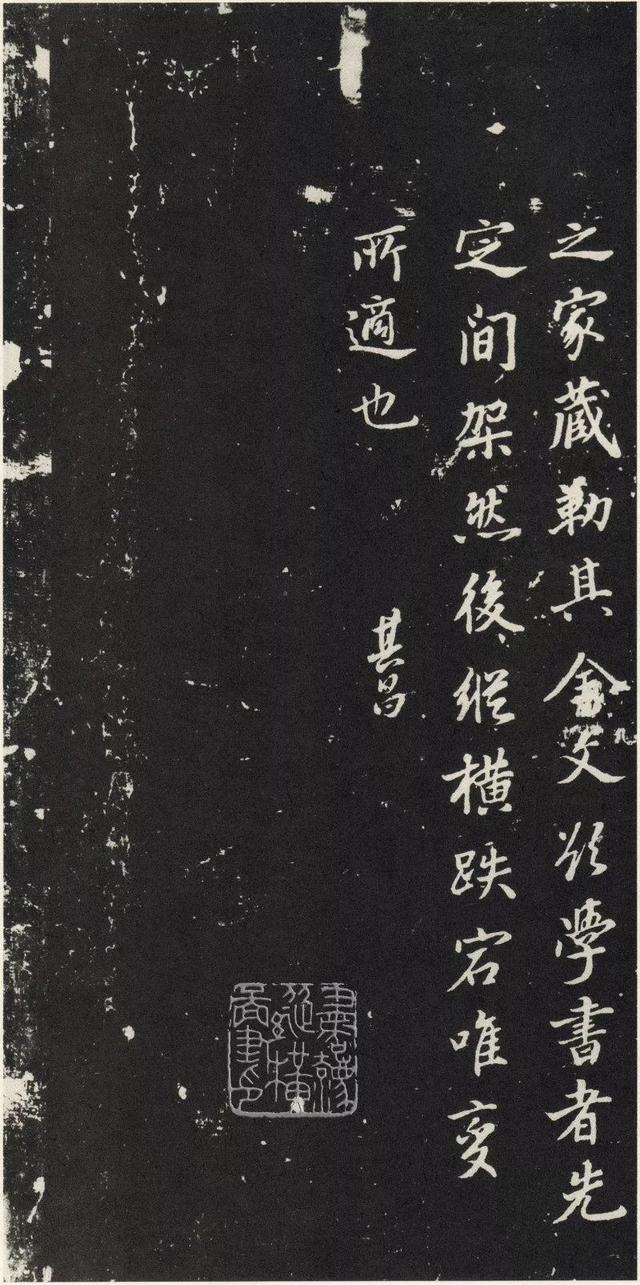 之家藏勒其全文欲學書者先
定間架然後縱横跌宕唯變
所適也
其昌